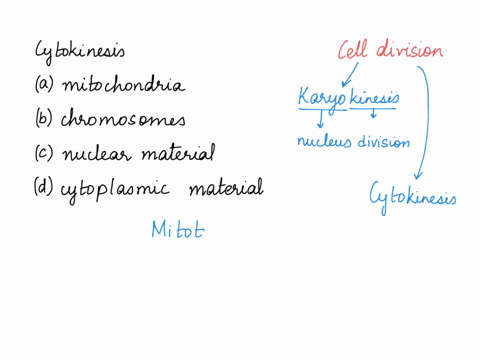 Cytokinesis
(a) mitochondria
(b) chromosomes
(c) nuclear material
(d) cytoplasmic material
Mitot
Cell division
Karyokinesis
nucleus division
Cytokinesis